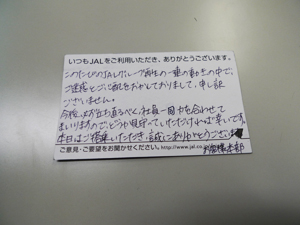 いつもJALをご利用いただき、ありがとうございます。
このたびのJALグループ再生の一連の動きの中で、
ご迷惑とご心配をおかけしておりまして、申し訳
ございません。
今後、必ず立ち直るべく、社員一同力を合わせて
まいりますので、どうか見守っていただければ幸いです。
本日はご搭乗いただき、誠にありがとうございます
ご意見・ご要望をお聞かせください。http://www.jal.co.jp
お客様本部